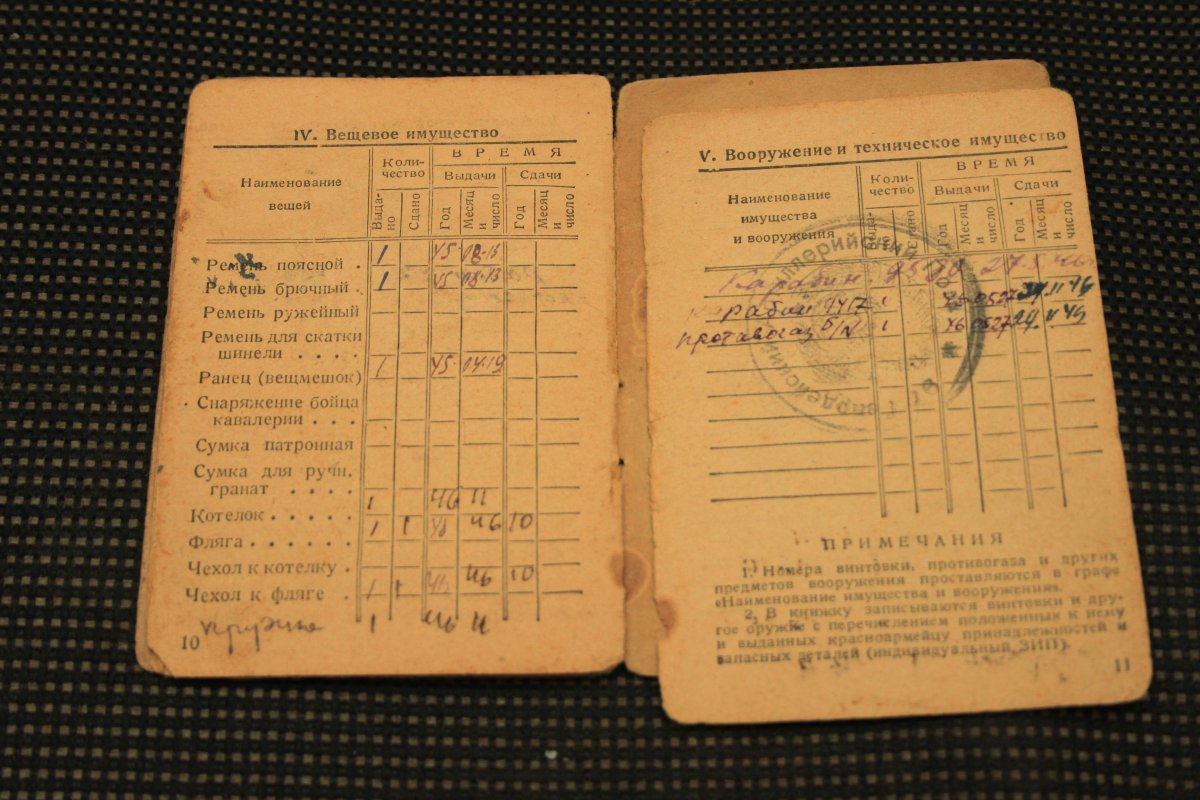 IV. Вещевое имущество
Наименование вещей
Коли-
чество
ВРЕМЯ
Выдачи
Сдачи
Выда-
но
Сдано
Год
Месяц и число
Год
Месяц и число
Ремень поясной . 1 45 08-13
Ремень брючный . 1 45 08-13
Ремень ружейный
Ремень для скатки
шинели . . . .
Ранец (вещмешок) 1 45 04-19
Снаряжение бойца
кавалерии . . .
Сумка патронная
Сумка для ручн.
гранат . . . .
Котелок . . . . . 1 46 11
Фляга . . . . . . 1 1 46 10
Чехол к котелку .
Чехол к фляге . 1 1 46 10
кружка 1 46 11
10
V. Вооружение и техническое имущество
Наименование
имущества
и вооружения
Коли-
чество
ВРЕМЯ
Выдачи
Сдачи
Выда-
Год
Месяц
и
число
Год
Месяц
и
число
Карабин
карабин 1
противогаз 1
ПРИМЕЧАНИЯ
1. Номера винтовки, противогаза и других
предметов вооружения проставляются в графе
«Наименование имущества и вооружения».
2. В книжку записываются винтовки и дру-
гое оружие с перечислением положенных к нему
и выданных красноармейцу принадлежностей и
запасных деталей (индивидуальный ЗИП).
11